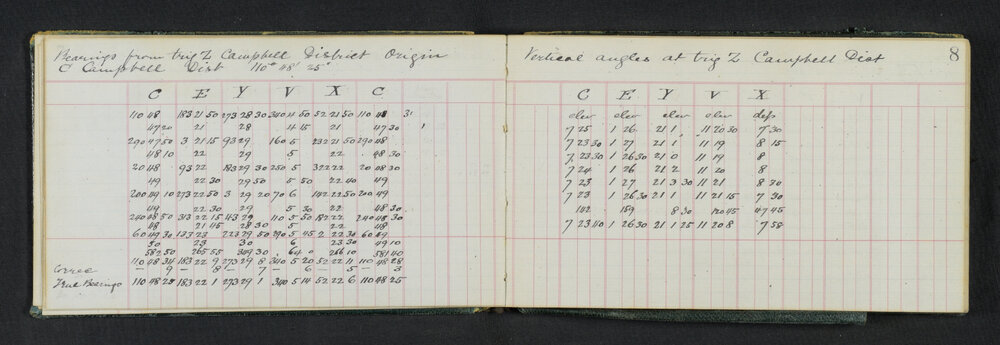 Bearings from trig Z Campbell District Origin
C Campbell Dist 110° 48' 25"
C E Y V X C
110 48 183 21 50 273 28 30 340 4 50 52 21 50 110 48
47 20 21 28 4 15 21 47 30
290 47 50 3 21 15 93 29 160 5 232 21 50 290 48
48 10 22 29 5 22 48 30
20 48 93 22 183 29 30 250 5 322 22 20 48 30
49 22 30 29 50 5 50 22 40 49
200 49 10 273 22 50 3 29 20 70 6 142 22 50 200 49
49 22 30 29 5 30 22 48 30
240 48 50 313 22 15 43 29 110 5 50 182 22 240 48 30
48 21 45 28 30 5 22 48
60 49 30 133 23 223 29 50 290 5 45 2 22 30 60 49
50 23 30 6 23 30 49 10
582 50 265 55 349 30 64 0 266 10 581 40
110 48 34 183 22 9 273 29 8 340 5 20 52 22 11 110 48 28
Correc — 9 — 8 — 7 — 6 — 5 — 3
True Bearings 110 48 25 183 22 1 273 29 1 340 5 14 52 22 6 110 48 25
Vertical angles at trig Z Campbell Dist
8
C E Y V X
elev elev elev elev deps
7 25 1 26 21 1 11 20 30 7 30
7 23 50 1 27 21 1 11 19 8 15
7 23 30 1 26 30 21 0 11 19 8
7 24 1 26 21 2 11 20 8
7 23 1 27 21 3 30 11 21 8 30
7 23 1 26 30 21 1 11 21 15 7 30
142 159 8 30 120 45 47 45
7 23 40 1 26 30 21 1 25 11 20 8 7 58